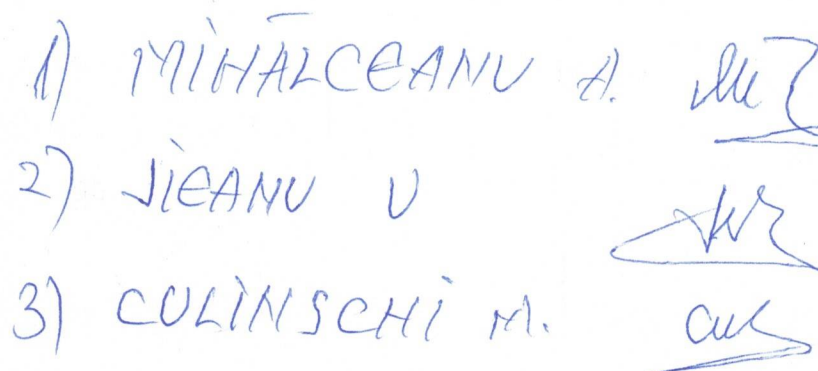 1) MIHĂLCEANU A.
2) JIEANU V
3) CULINSCHI M.